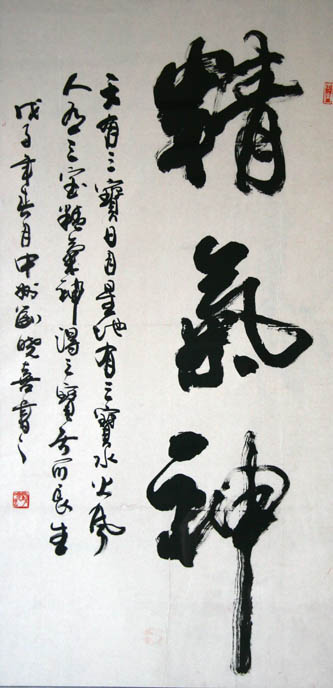 精氣神
天有三寶日月星地有三寶水火風
人有三宝精氣神得三寶者可長生
戊子年 月中州 晓喜書